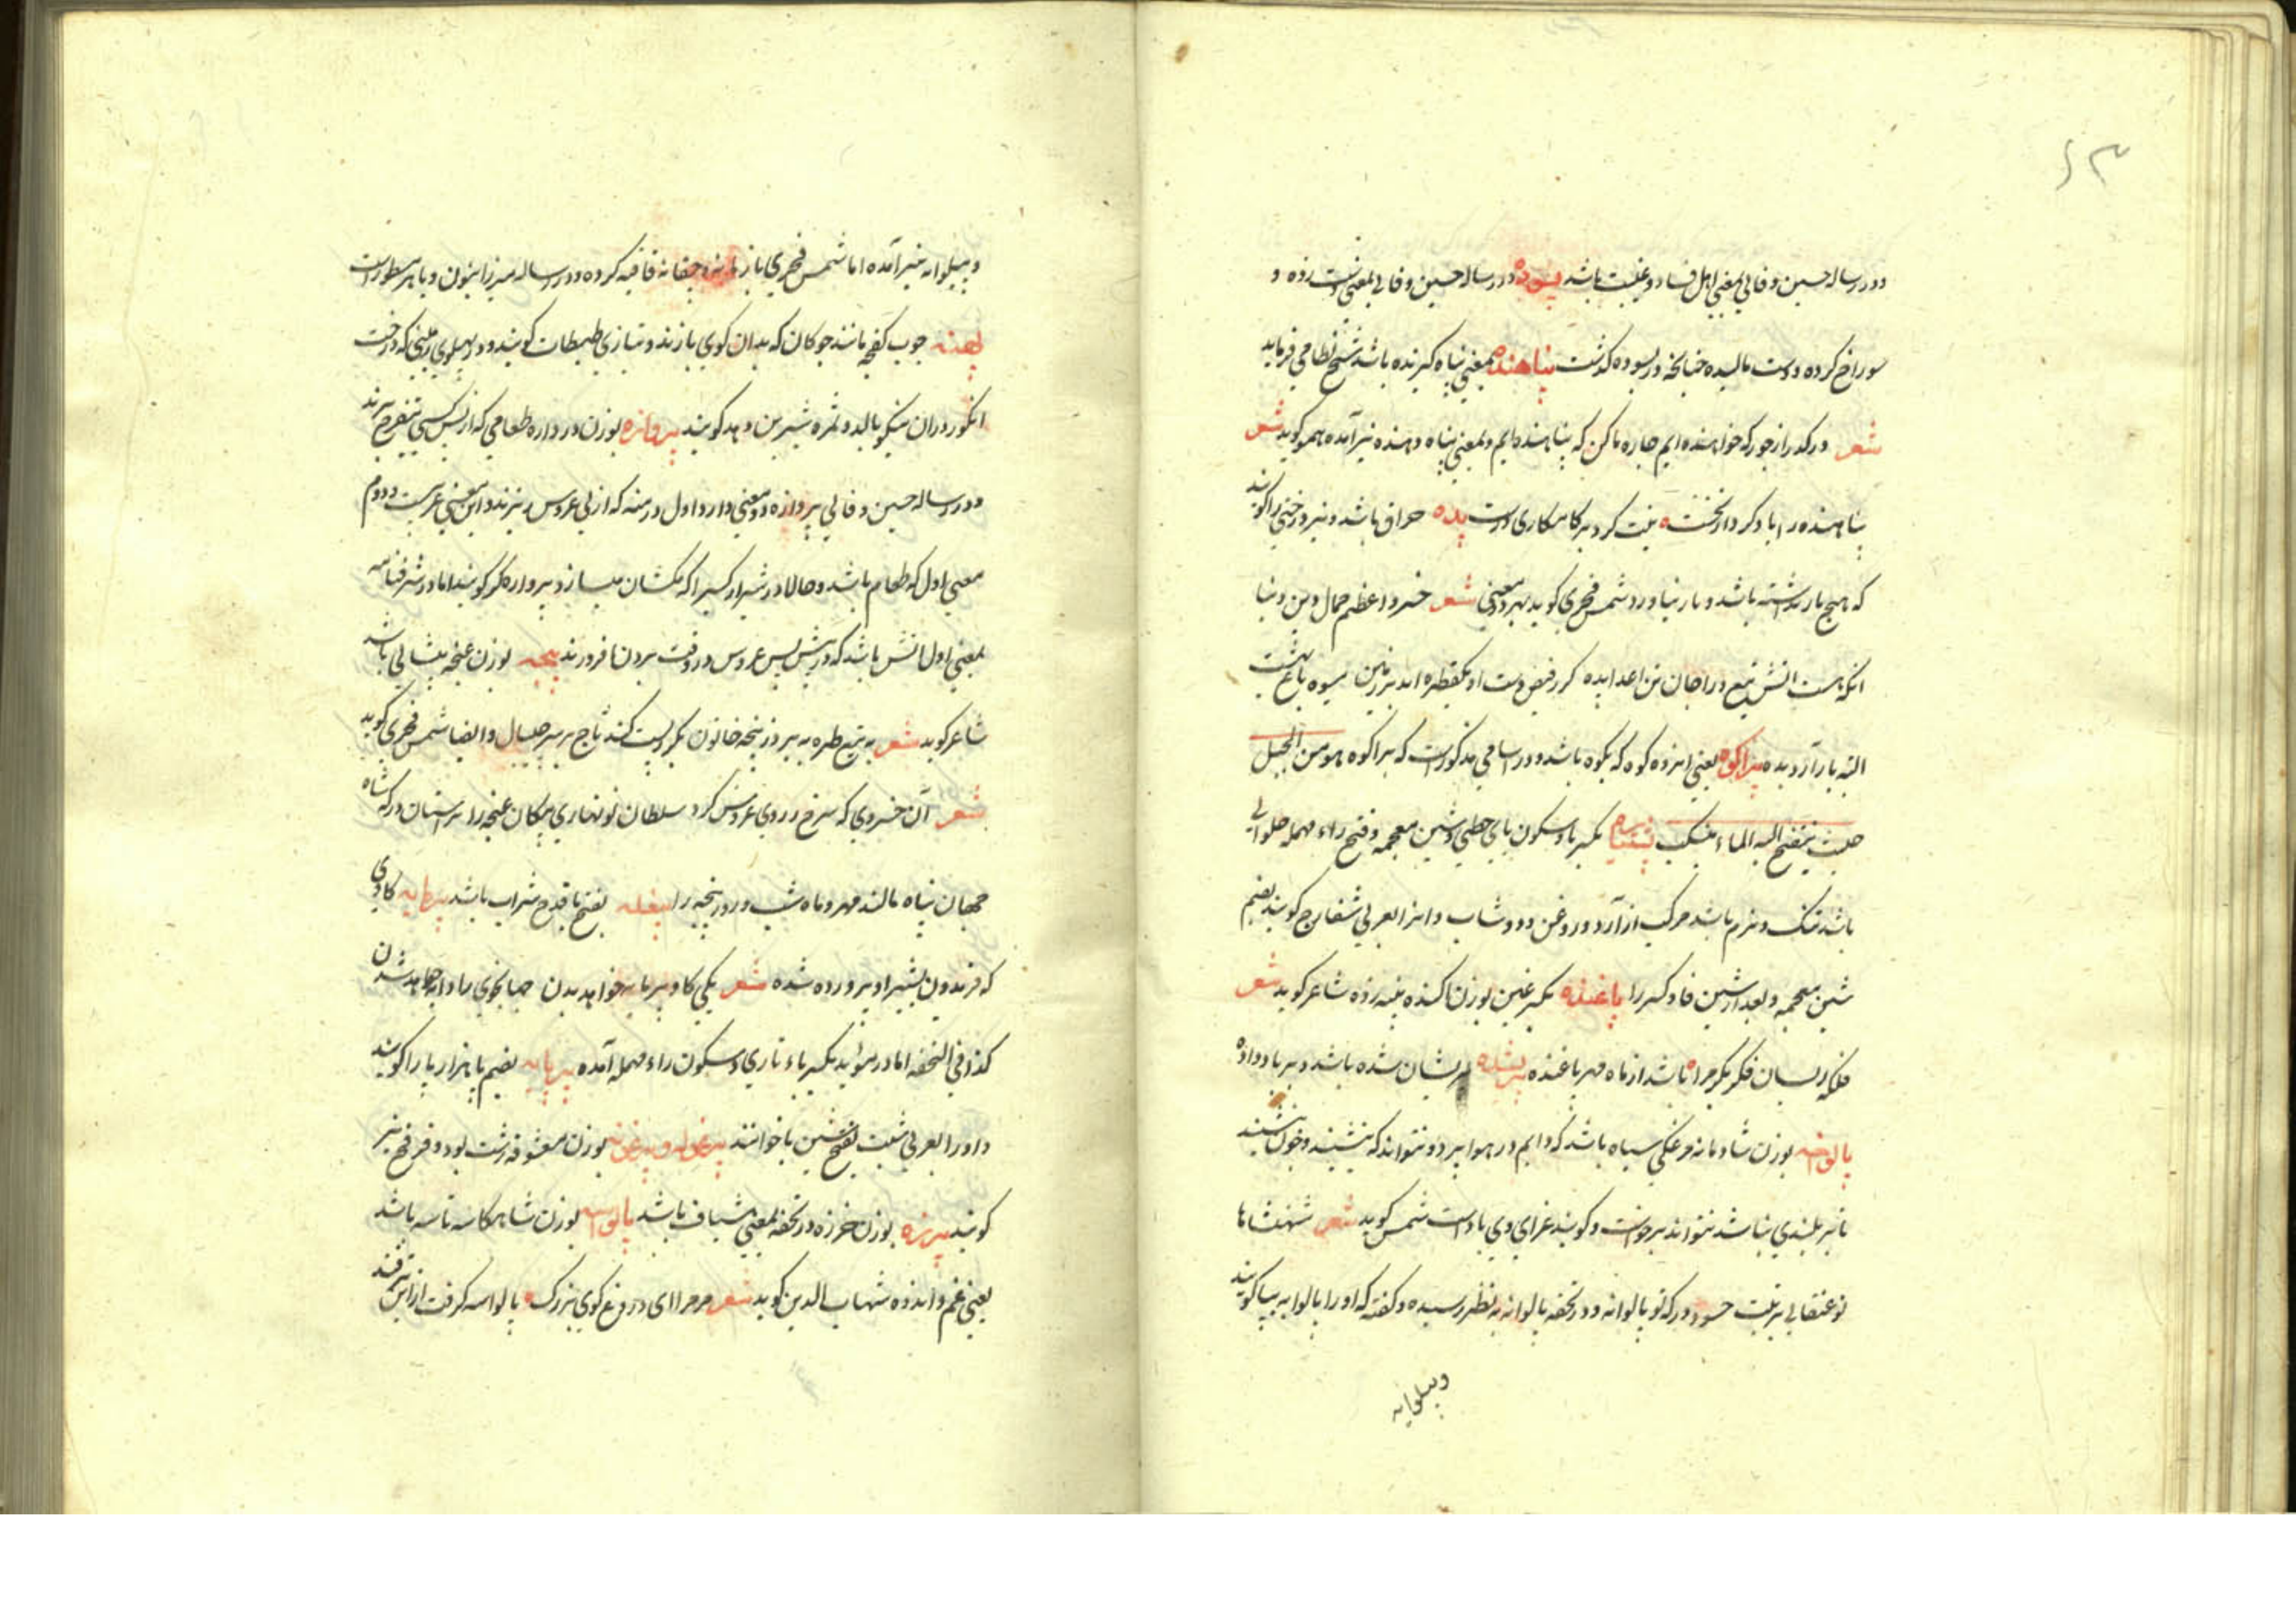 ۶۳
و در رساله حسین وفائی بمعنی اهل فساد و غیبت باشد پسوده در رساله حسین وفائی بمعنی دست زده و
سوراخ کرده و دست مالیده چنانچه در بسوده گذشت پناهنده بمعنی پناه گیرنده باشد شیخ نظامی فرماید
شعر در گذر از جور که خواهنده ایم چاره ما کن که پناهنده ایم و بمعنی پناه دهنده نیز آمده هموگوید شعر
پناهنده را یاد کرد از نخست نیت کرد بر کامکاری درست پده حراق باشد و نیز درختی را گویند
که هیچ بار نداشته باشد و بار نیاورد شمس فخری گوید بهر دو معنی شعر خسرو اعظم جمال دین و دنیا
انکه هست اتش تیغ ورا جان تن اعدا پده گر ز فیض دست او یکقطره اید بر زمین میوه باغ بهشت
البته بار آرد پده پراکوه یعنی انروه کوه که بکوه باشد و در اسامی مذکورست که پراکوه هو من الجبل
حیث یتفتح الیه الماء بکسر با و سکون یای حطی و شین معجمه و فتح راء مهمله حلوائی
باشد تنک و نرم باشد مرکب از آرد و روغن و دوشاب و انرا بعربی شفارج گویند بضم
شین معجمه و بعد از شین فا و کسر را پاغنده بکسر غین بوزن اکنده پنبه زده شاعر گوید شعر
فلکه ریسان فکر بکر مراه باشد از ماه مهر پاغنده پریشیده پریشان شده باشد و بر باد داده
پالوانه بوزن شادمانه مرغکی سیاه باشد که دایم در هوا پرد و نتواند که بنشیند و چون بنشیند
تا بر بلندی نباشد نتواند برخواست و گویند غذای وی بادست شمس گوید شعر شهنشاها
تو عنقائی برتبت حسود درگه تو پالوانه و در تحفه پالوانه بنظر رسیده و گفته که او را پالوایه بیا گویند
و پیلوایه
و پیلوانه نیز آمده اما شمس فخری با زمانه و چغانه قافیه کرده و در رساله میرزا بنون و یا هر سطورست
پهنه چوب کفچه مانند چوکان که بدان گوی بازند و بتازی طبطاب گویند و در پهلوی زمینی که درخت
انگور دران نیکو بالد و ثمره شیرین دهد گویند پروانزه بوزن دروازه طعامی که از پس کسی بتفرج برند
و در رساله حسین وفائی پروازه دو معنی دارد اول در منه که از پی عروس ریزند و این معنی غریبست دوم
معنی اول که طعام باشد و حالا در شیراز کسیرا که مکشان میسازد پروازه گر گویند اما در شرفنامه
بمعنی اول اتش باشد که در پیش پس عروس در وقت بردن افروزند پیچه بوزن غنچه پیشانی باشد
شاعر گوید شعر به تیغ طره ببرد ز پنجه خاتون بگرز پست کند تاج بر سر چیپال و ایضا شمس فخری گوید
شعر آن خسروی که سرخ ز روی عروس کرد سلطان نو بهاری پیکان غنچه را بر استان درگه شاه
جهان پناه مالند مهر و ماه شب و روز پنجه را پیغله بفتح با قدح شراب باشد پرمایه گاوی
که فریدون بشیر او پرورده شده شعر یکی گاو پرمایه خواهد بدن جهانجوی را دایه خواهد شدن
کذا فی التحفه اما در موید بکسر باء تازی و سکون راء مهمله آمده پرپایه بضم با هزار پا را گویند
و او را بعربی شبث بفتح شین با خوانند پرغوله و پرغونه بوزن معشوقه زشت بود و فرفخ نیز
گویند پرزه بوزن خرزه و در تحفه بمعنی شیاف باشد پالواسه بوزن شاهکاسه تاسه باشد
یعنی غم و اندوه شهاب الدین گوید شعر مر مرا ای دروغ گوی بزرک پالواسه گرفت از این ترفند